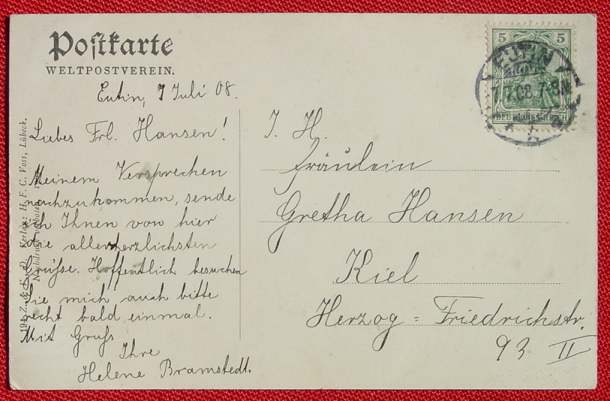 Postkarte
WELTPOSTVEREIN.
Eutin, 7 Juli 08.
Liebes Frl. Hansen!
Meinem Versprechen
nachzukommen, sende
ich Ihnen von hier
die allerherzlichsten
Grüße. Hoffentlich besuchen
Sie mich auch bitte
recht bald einmal.
Mit Gruß
Ihre
Helene Bramstedt.
Verlag: H. F. C. Voss, Lübeck.
5 5
EUTIN
7.7.08. 7-8N
I. H.
Fräulein
Gretha Hansen
Kiel
Herzog=Friedrichstr.
93 II